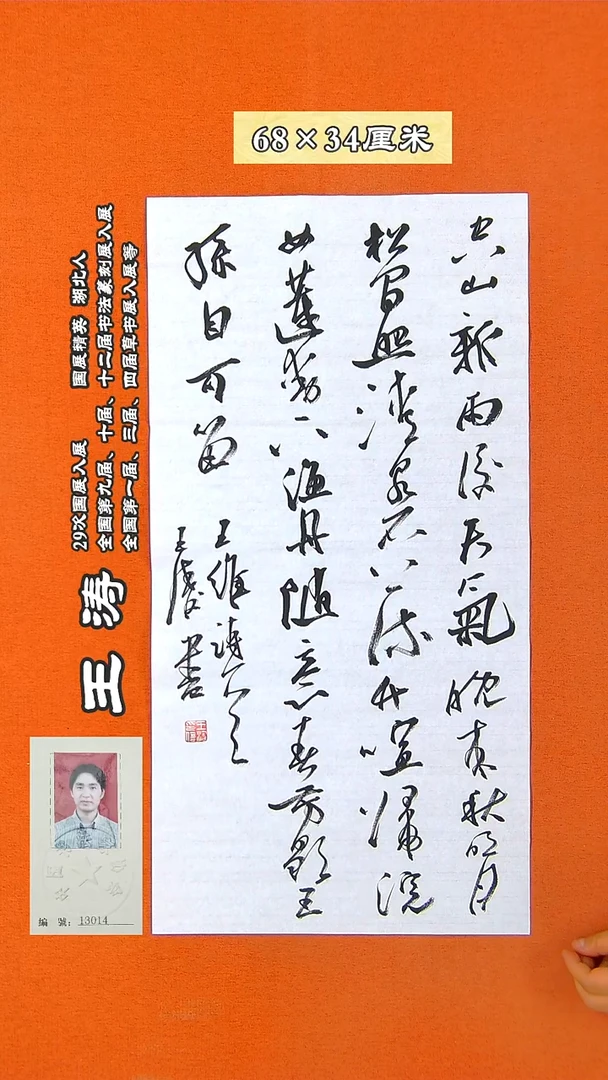 68×34厘米
空山新雨後天氣晚來秋明月
松間照清泉石上流竹喧歸浣
女蓮動下漁舟隨意春芳歇王
孫自可留
王維詩
王濤書
王涛
29次国展入展 国展精英 湖北人
全国第九届、十届、十二届书法篆刻展入展
全国第一届、三届、四届草书展入展等
編 號：13014